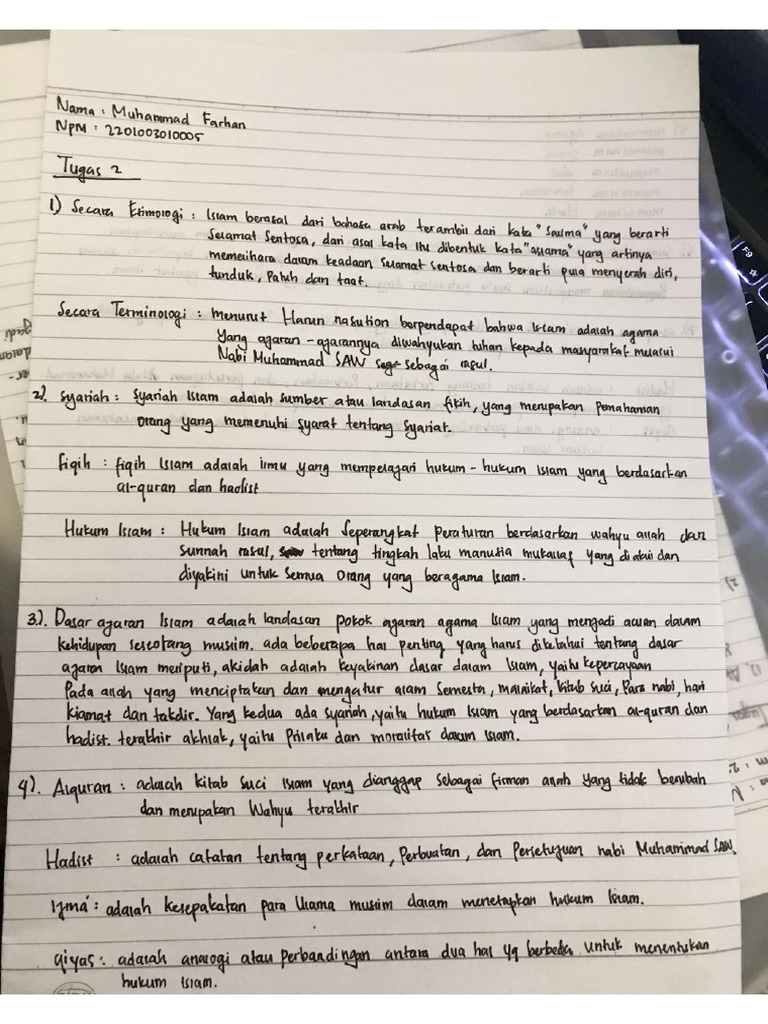 Nama : Muhammad Farhan
NPM : 2201003010005
Tugas 2
1) Secara Etimologi : Islam berasal dari bahasa arab terambil dari kata "salima" yang berarti
selamat sentosa, dari asal kata itu dibentuk kata "aslama" yang artinya
memelihara dalam keadaan selamat sentosa dan berarti pula menyerah diri,
tunduk, patuh dan taat.
Secara Terminologi : menurut Harun nasution berpendapat bahwa Islam adalah agama
yang ajaran - ajarannya diwahyukan tuhan kepada masyarakat melalui
Nabi Muhammad SAW sebagai rasul.
2). Syariah : Syariah Islam adalah sumber atau landasan fikih, yang merupakan pemahaman
orang yang memenuhi syarat tentang syariat.
Fiqih : fiqih Islam adalah ilmu yang mempelajari hukum - hukum Islam yang berdasarkan
al-quran dan hadist
Hukum Islam : Hukum Islam adalah seperangkat peraturan berdasarkan wahyu allah dan
sunnah rasul, tentang tingkah laku manusia mukallaf yang diakui dan
diyakini untuk semua orang yang beragama Islam.
3.). Dasar ajaran Islam adalah landasan pokok ajaran agama Islam yang menjadi acuan dalam
kehidupan seseorang muslim. ada beberapa hal penting yang harus diketahui tentang dasar
ajaran Islam meliputi, akidah adalah keyakinan dasar dalam Islam, yaitu kepercayaan
Pada allah yang menciptakan dan mengatur alam semesta, malaikat, kitab suci, Para nabi, hari
kiamat dan takdir. Yang kedua ada syariah, yaitu hukum Islam yang berdasarkan al-quran dan
hadist. terakhir akhlak, yaitu Prilaku dan moralitas dalam Islam.
4). Alquran : adalah kitab suci Islam yang dianggap sebagai firman allah yang tidak berubah
dan merupakan Wahyu terakhir
Hadist : adalah catatan tentang perkataan, Perbuatan, dan Persetujuan nabi Muhammad SAW.
Ijma' : adalah kesepakatan para Ulama muslim dalam menetapkan hukum Islam.
qiyas : adalah analogi atau perbandingan antara dua hal yg berbeda untuk menentukan
hukum Islam.
F9